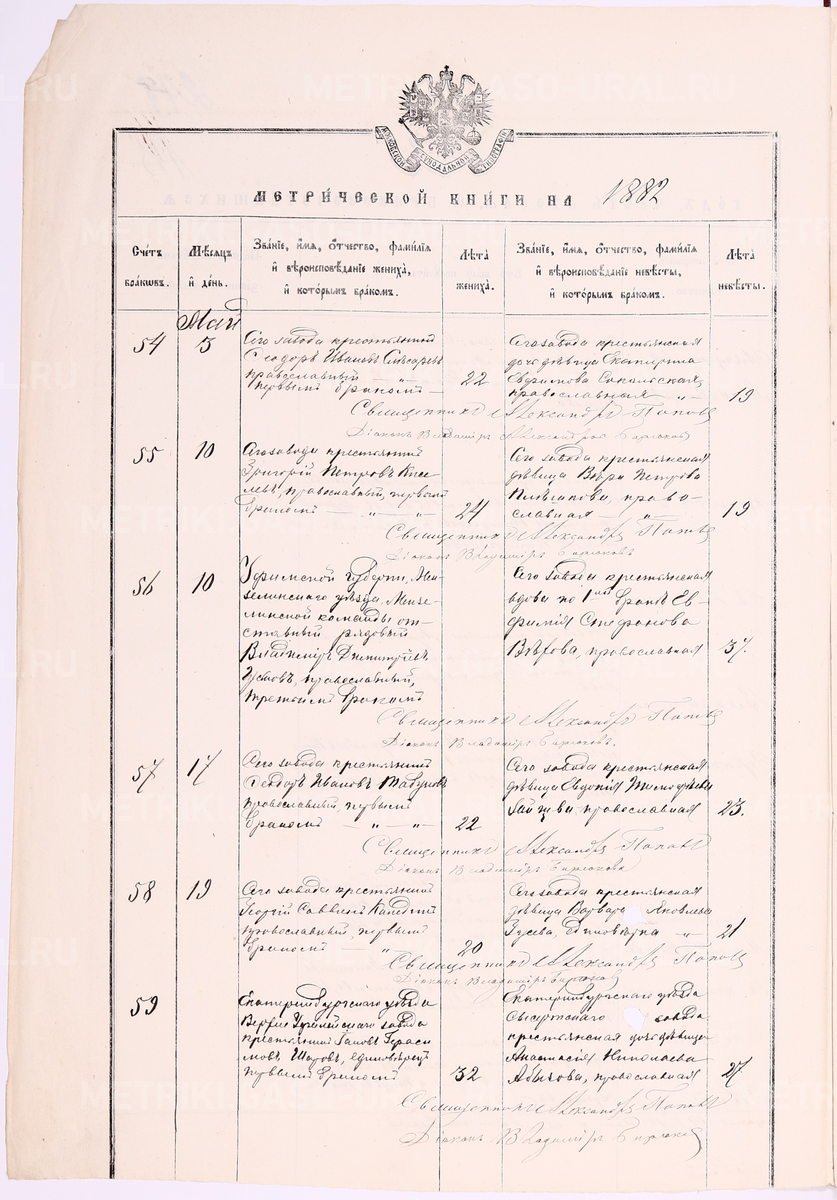 МОСКОВСКОЙ СѴНОДАЛЬНОЙ ТИПОГРАФІИ
МЕТРИ́ЧЕСКОЙ КНИ́ГИ НА 1882
Сче́тъ бра́кѡвъ.
Мѣ́сяцъ и́ де́нь.
Зва́ніе, и́мя, ѻ́тчество, фами́лія и́ вѣроисповѣ́даніе жениха̀, и́ кото́рымъ бра́комъ.
Лѣ́та жениха̀.
Зва́ніе, и́мя, ѻ́тчество, фами́лія и́ вѣроисповѣ́даніе невѣ́сты, и́ кото́рымъ бра́комъ.
Лѣ́та невѣ́сты.
Май
54
5
Сего завода крестьянинъ
Ѳеодоръ Ивановъ Слѣсаревъ
православный — „ —
первымъ бракомъ —
22
Сего завода крестьянская
дочь дѣвица Екатерина
Евфимова
православная — „
19
Священникъ Александръ Поповъ
Діаконъ Владиміръ Александровъ Бирюковъ
55
10
Сего завода крестьянинъ
Григорій Петровъ Кисе-
левъ, православный, первымъ
бракомъ — „ — „
24
Сего завода крестьянская
дѣвица Вѣра Петрова
право-
славная — „ —
19
Священникъ Александръ Поповъ
Діаконъ Владиміръ Бирюковъ
56
10
Уфимской губерніи, Мен-
зелинскаго уѣзда, Мензе-
линской команды от-
ставный рядовый
Владиміръ Димитріевъ
Усовъ, православный,
третьимъ бракомъ
Сего завода крестьянская
вдова по 1мъ бракѣ Ев-
фимія Стефанова
православная
37.
Священникъ Александръ Поповъ
Діаконъ Владиміръ Бирюковъ.
57
17
Сего завода крестьянинъ
Ѳеодоръ Ивановъ Табуновъ
православный, первымъ
бракомъ — „ — „ —
22
Сего завода крестьянская
дѣвица Евдокія Тимоѳѣева
православная
23.
Священникъ Александръ Поповъ
Діаконъ Владиміръ Бирюковъ
58
19
Сего завода крестьянинъ
Георгій Саввинъ
православный, первымъ
бракомъ — „
20
Сего завода крестьянская
дѣвица Варвара Яковлева
Гусева, единовѣрка „
21
Священникъ Александръ Поповъ
Діаконъ Владиміръ Бирюковъ
59
Екатеринбургскаго уѣзда
Верхне Уфалейскаго завода
крестьянинъ Іаковъ Гераси-
мовъ Шаровъ, единовѣрецъ
первымъ бракомъ
32
Екатеринбургскаго уѣзда
Сысертскаго завода
крестьянская дочь дѣвица
Анастасія Николаева
Абыхова, православная
27
Священникъ Александръ Поповъ
Діаконъ Владиміръ Бирюковъ